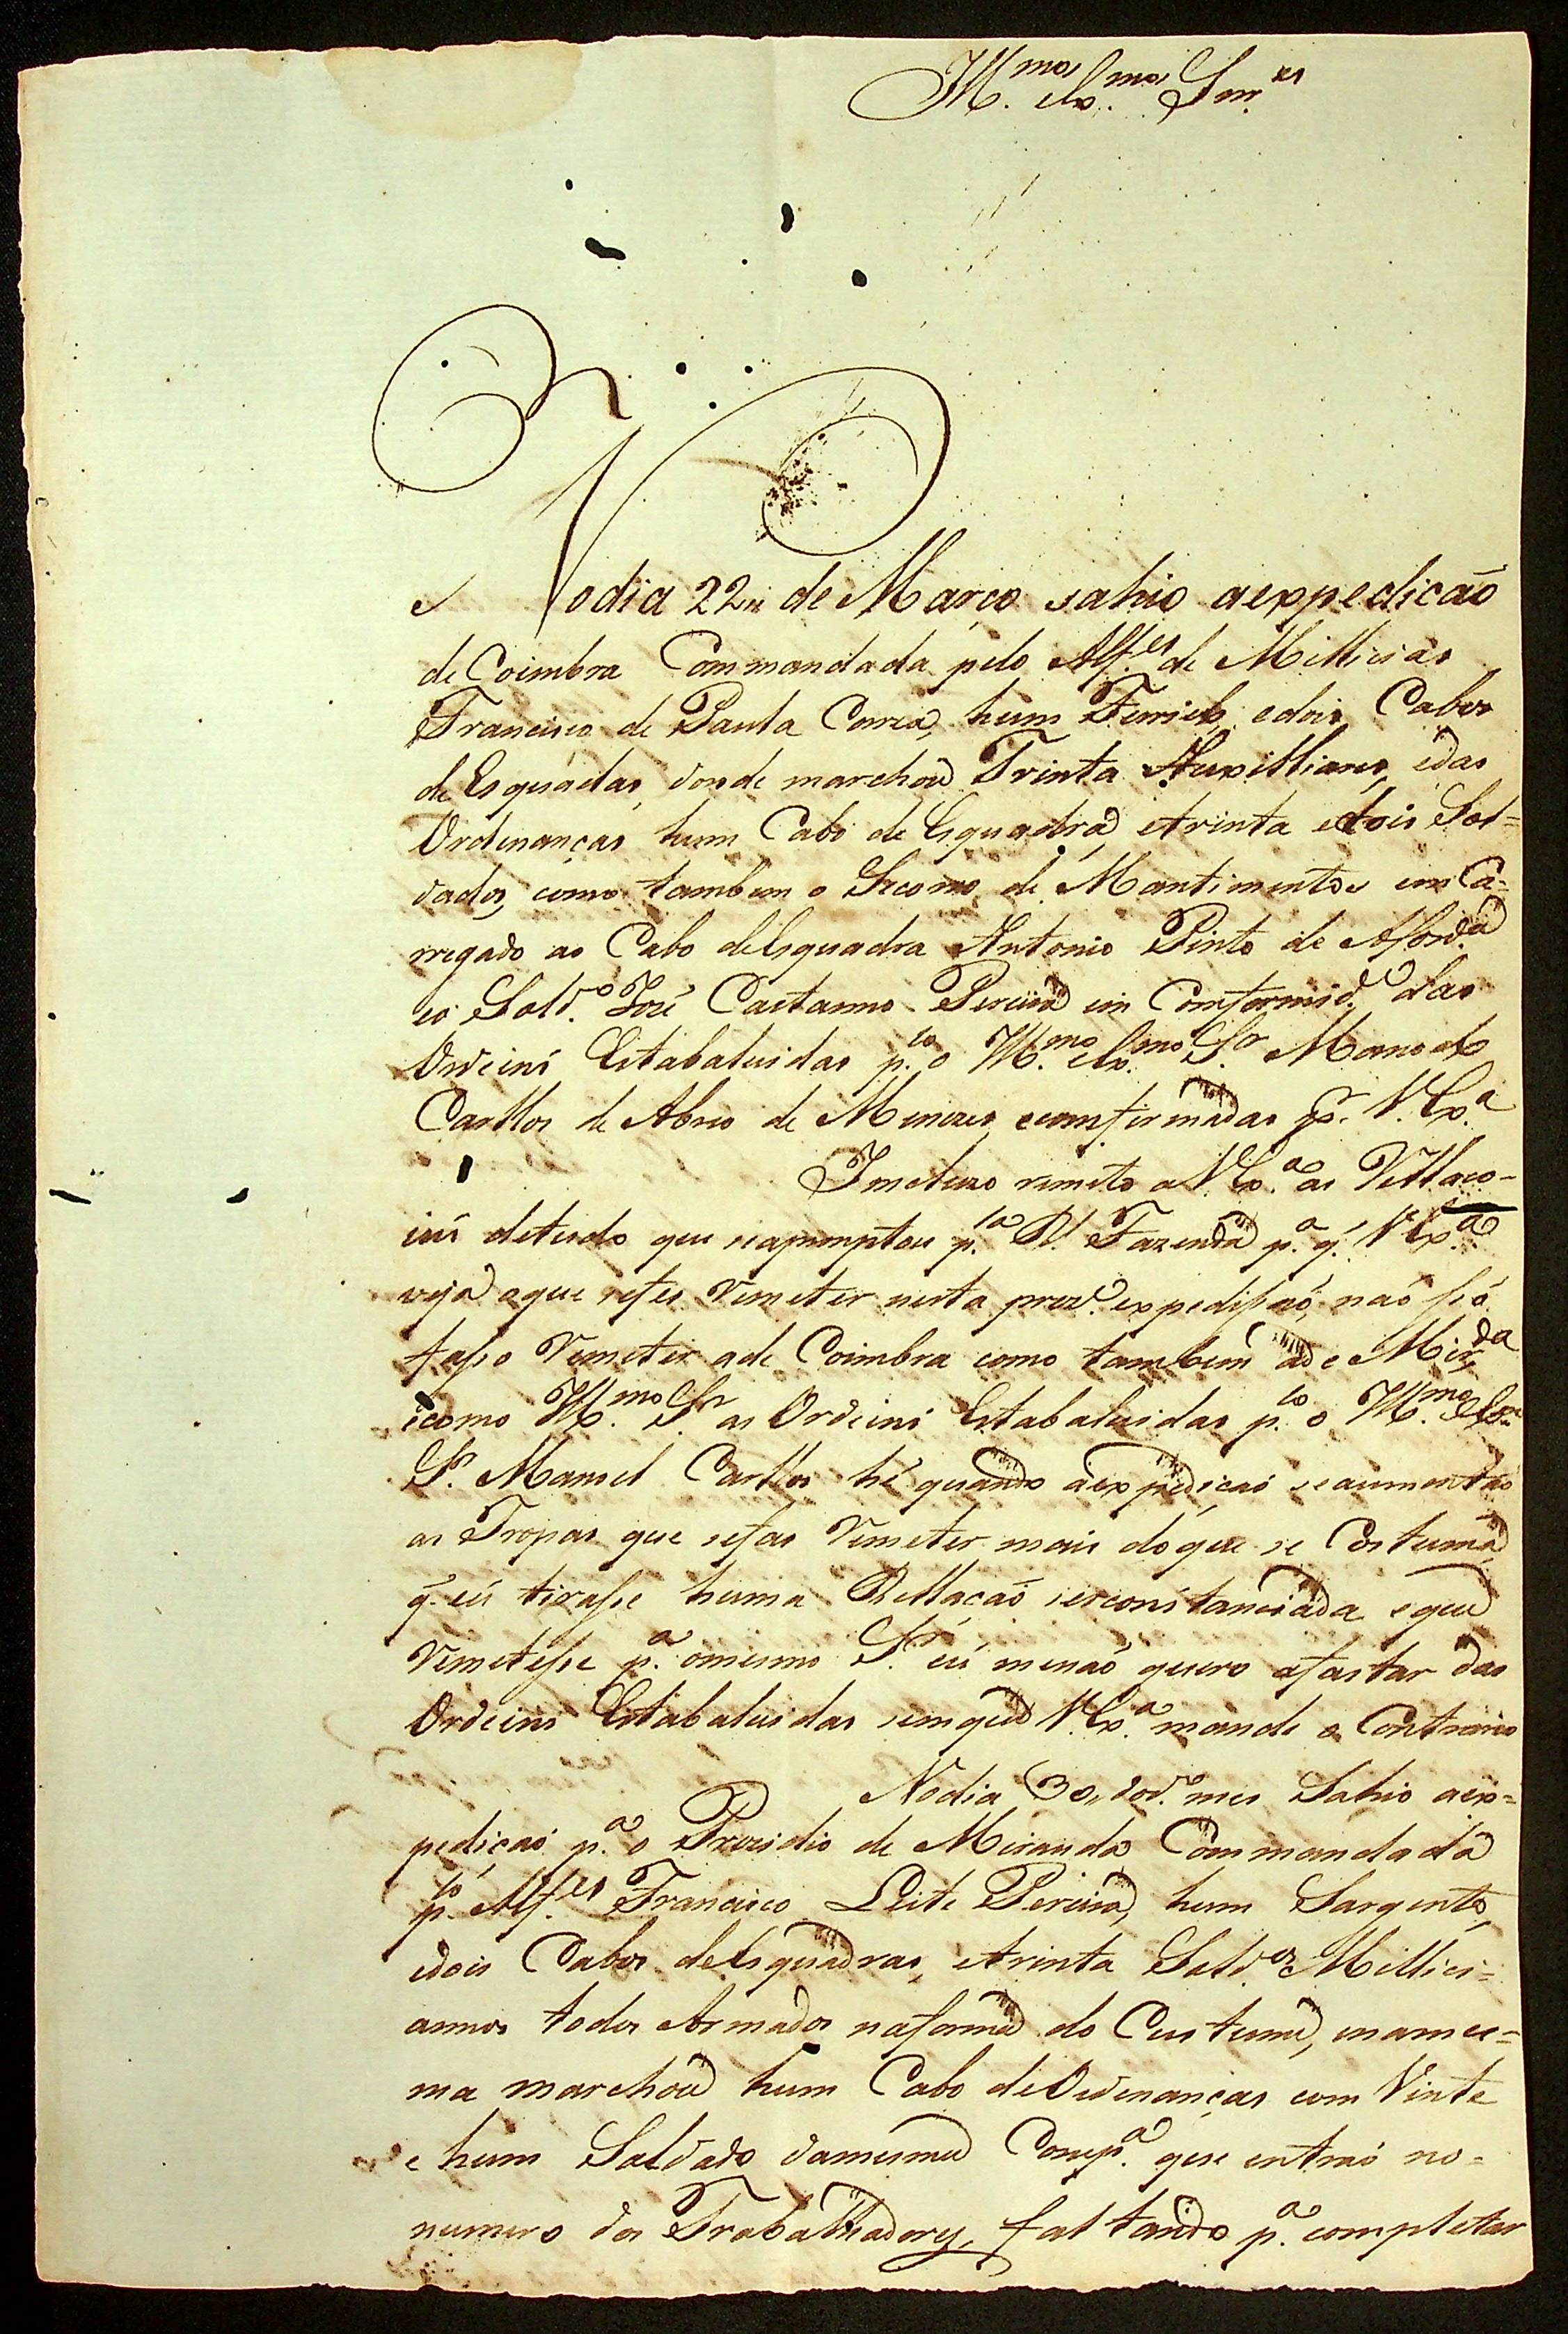 Ill.mos Ex.mos Snr.es
No dia 22,, de Março sahio aexpedicaõ
de Coimbra Commandada pelo Alf.es de Millicias
Francisco de Paula Correa, hum Furriel, edois Cabos
de Esquadas, donde marchou Trinta Auxilliares, edas
Ordenanças hum Cabo de Esquadra, etrinta edois Sol=
dados, como tambem o Secorro de Mantimentos emCa=
rregado ao Cabo deEsquadra Antonio Pinto de
eo Sold.o José Caetanno Pereira em Comformid.e das
Ordeins Estabaleisidas p.lo o Ill.mo Ex.mo S.r Manoel
Carllos de Abreo de Menezes, ecomfirmadas por V. Ex.a
Imcluzo remeto a V.Ex.a as Rellaco-
ins detudo que seapromptou p.la R. Fazenda p.a q. V.Ex.a
veja oque sefes Remeter nesta prez.e expedissaõ, naõ só
fasso Remeter ade Coimbra como tambem ade Mir.da
ecomo Ill.mo S.r as Ordeins Estabaleisidas p.lo o Ill.mo Ex.mo
S.r Manoel Carllos hé quando aexpediçaõ seaumentao
as Tropas que sefas Remeter mais doque se Costuma,
q. eu tirasse huma Rellacaõ serconstanciada eque
Remetesse p.a omesmo S.r eu menaõ quero afastar das
Ordeins Estabaleisidas semque V.Ex.a mande o Contrario
Nodia 30,, dod.o mes Sahio aex=
pediçaõ p.a o Prezidio de Miranda Commandada
p.lo Alf.es Francisco Leite Pereira, hum Sargento,
edois Cabos deEsquadras, etrinta Sold.os Millici=
annos todos Armados naforma do Custume, enames=
ma marchou hum Cabo deOrdenanças com Vinte
e hum Soldado damesma Comp.a que entraõ no=
numero dos Trabalhadores, faltando p.a completar